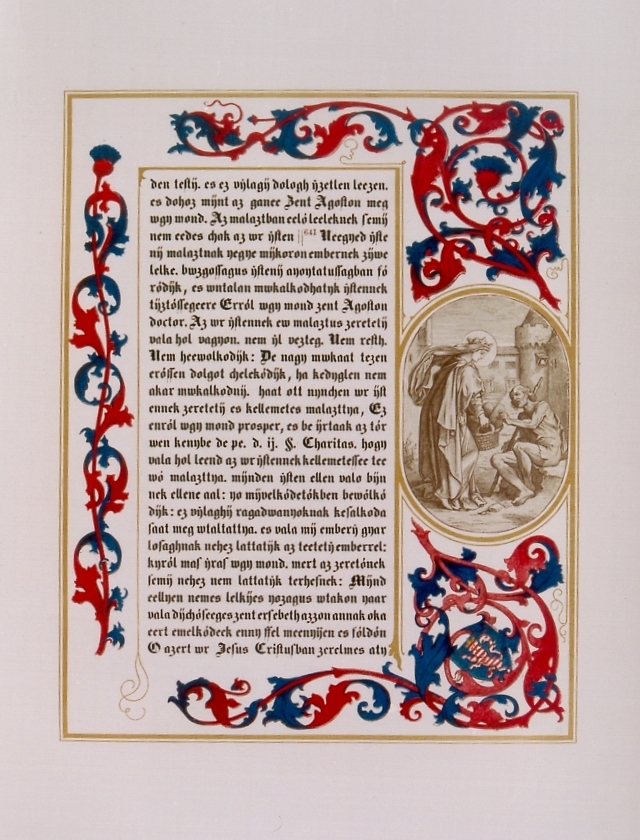 den testÿ. es ez vÿlagÿ dologh ÿzetlen leezen.
es dohaz mÿnt az ganee Zent Agoston meg
wgy mond. Az malaztban eeló leeleknek semÿ
nem eedes chak az wr ÿsten ||641 Neegyed ÿste
nÿ malaztnak yegye mÿkoron embernek zÿwe
lelke. bwzgossagus ÿstenÿ aÿoÿtatussagban fó
ródÿk, es wntalan mwkalkodhatÿk ÿstennek
tÿztóssegeere Erról wgy mond zent Agoston
doctor. Az wr ÿstennek ew malaztus zeretetÿ
vala hol vagyon. nem ÿl vezteg. Nem resth.
Nem heewolkodÿk: De nagy mwkaat tezen
eróssen dolgot chelekódÿk, ha kedyglen nem
akar mwkalkodnÿ. haat ott nynchen wr ÿst
ennek zeretetÿ es kellemetes malazttya, Ez
enról wgy mond prosper, es be ÿrtaak az tór
wen kenybe de pe. d. ij. §. Charitas. hogy
vala hol leend az wr ÿstennek kellemetessee tee
wó malazttya. mÿnden ÿsten ellen valo bÿn
nek ellene aal: yo mÿvelkódetókben bewólkó
dÿk: ez vÿlaghÿ ragadwanyoknak kesalkoda
saat meg wtaltattya. es vala mÿ emberÿ gyar
losaghnak nehez lattatÿk az teetetÿ emberrel:
kyról mas ÿras wgy mond. mert az zeretónek
semÿ nehez nem lattatÿk terhesnek: Mÿnd
eellyen nemes lelkÿes yozagus wtakon yaar
vala dÿchóseeges zent ersebeth azzon annak oka
eert emelkódeek enny ffel meenyÿen es fóldón
O azert wr Jesus Cristusban zerelmes aty